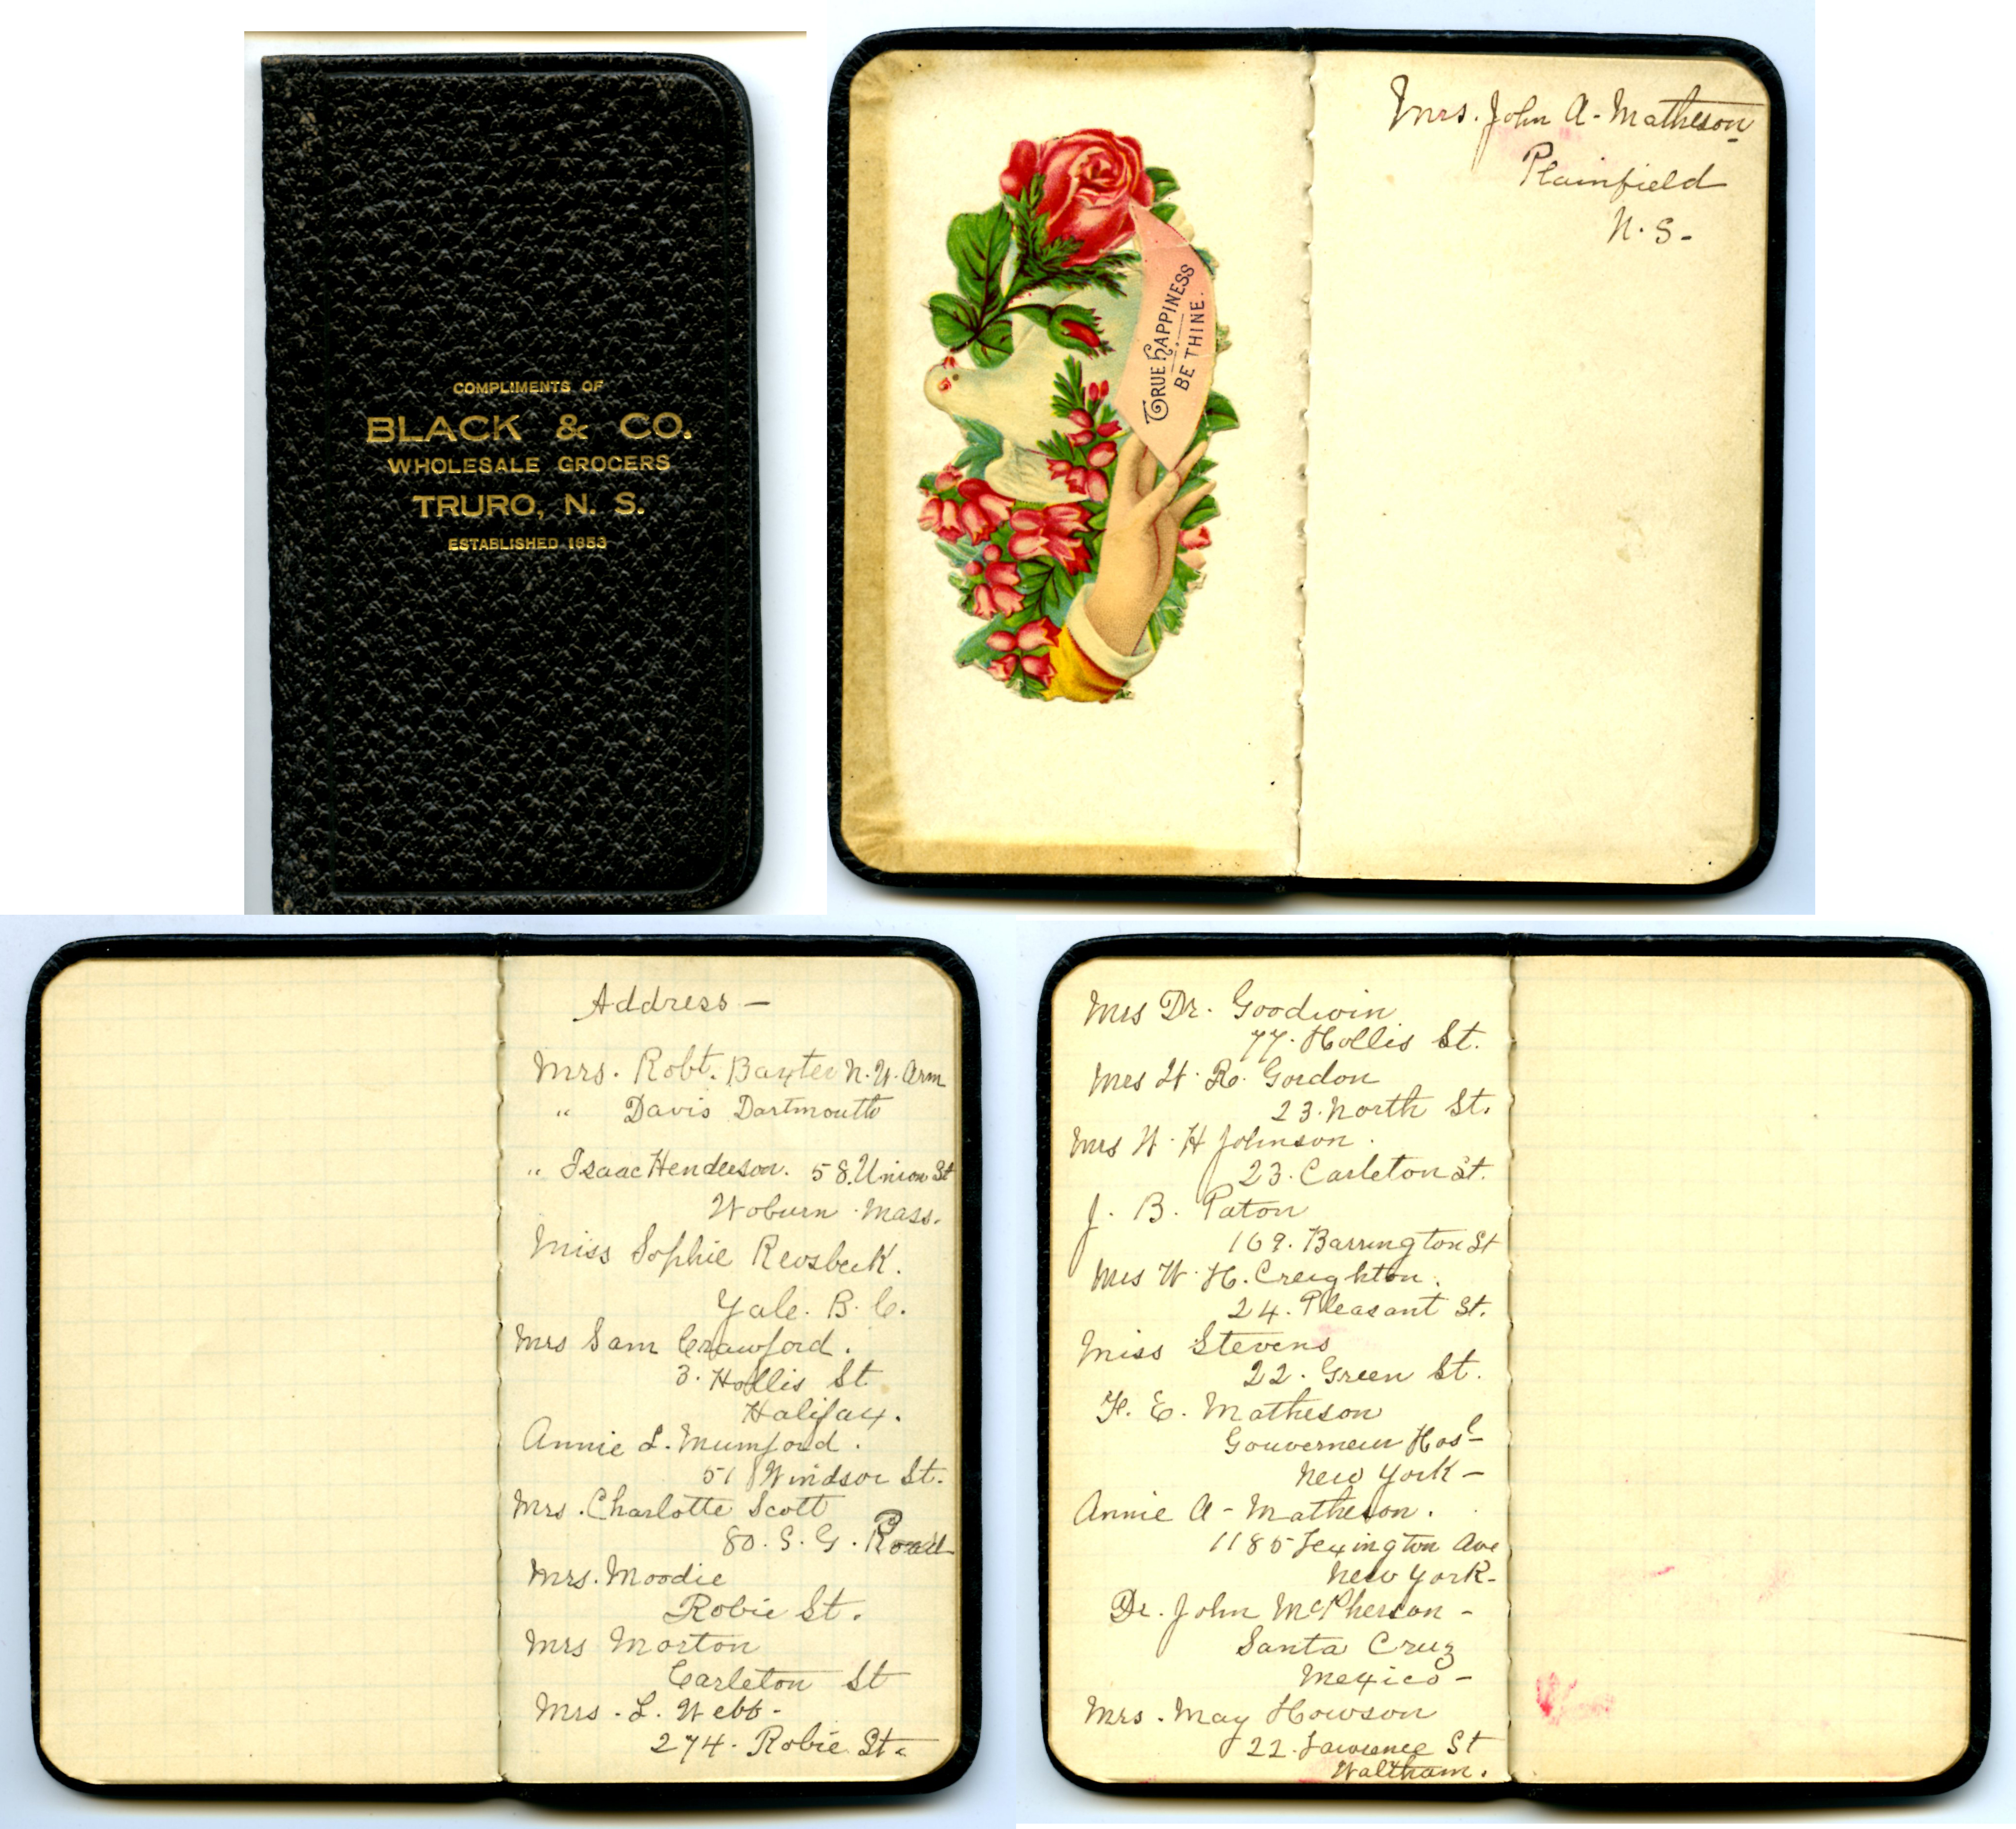 COMPLIMENTS OF
BLACK & CO.
WHOLESALE GROCERS
TRURO, N. S.
ESTABLISHED 1853
TRUE HAPPINESS
BE THINE.
Mrs. John A. Matheson
Plainfield
N. S.
Address —
Mrs. Robt. Baxter N. W. Arm
" Davis Dartmouth
" Isaac Henderson. 58. Union St
Woburn. Mass.
Miss Sophie
Yale. B. C.
Mrs Sam Crawford.
3. Hollis St
Halifax.
Annie L. Mumford.
51 Windsor St.
Mrs. Charlotte Scott
80. S. G. Road
Mrs. Moodie
Robie St.
Mrs Morton
Carleton St
Mrs. L. Webb.
274. Robie St.
Mrs Dr. Goodwin
77. Hollis St.
Mrs H. R. Gordon
23. North St.
Mrs W. H Johnson.
23. Carleton St.
J. B. Paton
169. Barrington St
Mrs W. H. Creighton.
24. Pleasant St.
Miss Stevens
22. Green St.
F. E. Matheson
Gouverneur Hosl
New York —
Annie A — Matheson.
1185 Lexington Ave
New York —
Dr. John McPherson —
Santa Cruz
Mexico —
Mrs. May Howson
22. Lawrence St
Waltham.